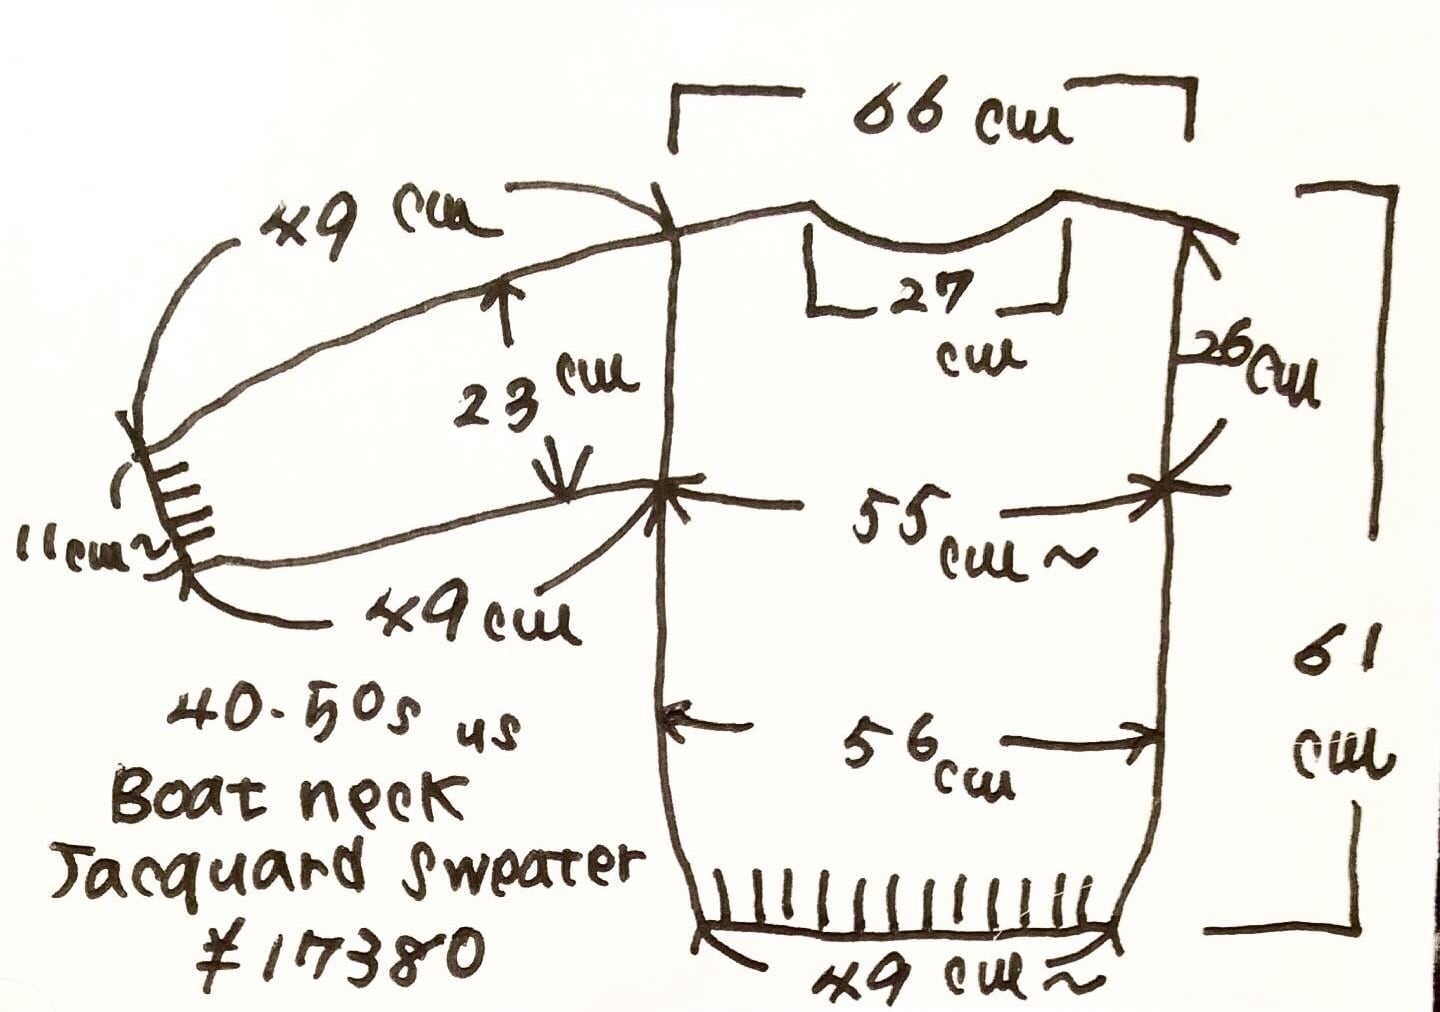 66 cm
49 cm
27
cm
26cm
23 cm
55 cm ~
11cm ~
49 cm
61
cm
56 cm
40.50s us
Boat neck
Jacquard sweater
¥17380
49 cm ~